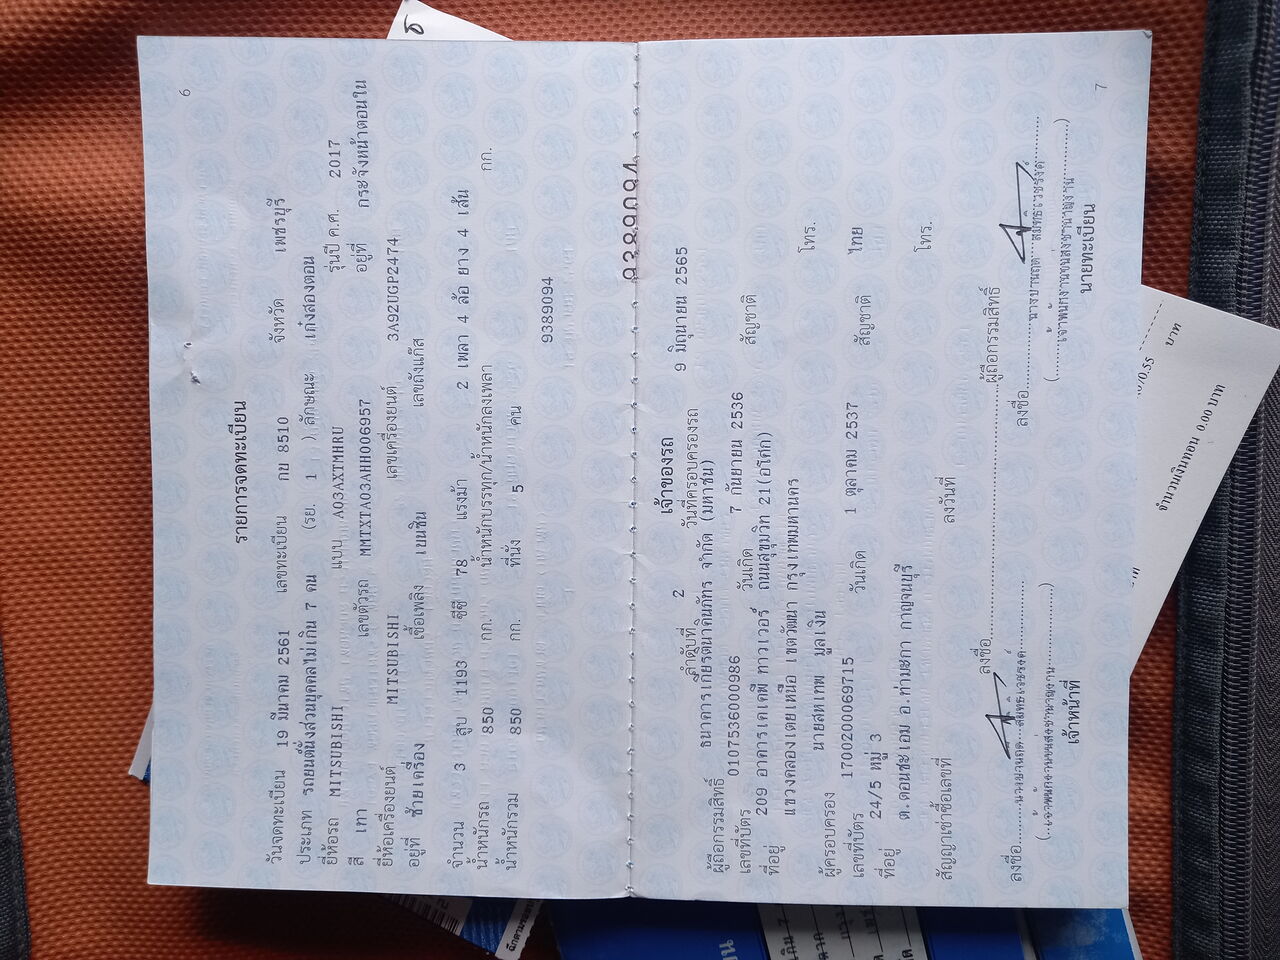 6
รายการจดทะเบียน
วันจดทะเบียน 19 มีนาคม 2561 เลขทะเบียน กบ 8510 จังหวัด เพชรบุรี
ประเภท รถยนต์นั่งส่วนบุคคลไม่เกิน 7 คน (รย. 1 ) ลักษณะ เก๋งสองตอน
ยี่ห้อรถ MITSUBISHI แบบ A03AXTMHRU รุ่นปี ค.ศ. 2017
สี เทา เลขตัวรถ MMTXTA03AHH006957 อยู่ที่ กระจังหน้าตอนใน
ยี่ห้อเครื่องยนต์ MITSUBISHI เลขเครื่องยนต์ 3A92UGP2474
อยู่ที่ ซ้ายเครื่อง เชื้อเพลิง เบนซิน เลขถังแก๊ส
จำนวน 3 สูบ 1193 ซีซี 78 แรงม้า 2 เพลา 4 ล้อ ยาง 4 เส้น
น้ำหนักรถ 850 กก. น้ำหนักบรรทุก/น้ำหนักลงเพลา กก.
น้ำหนักรวม 850 กก. ที่นั่ง 5 คน
9389094
9389094
เจ้าของรถ
ลำดับที่ 2 วันที่ครอบครองรถ 9 มิถุนายน 2565
ผู้ถือกรรมสิทธิ์ ธนาคารเกียรตินาคินภัทร จำกัด (มหาชน)
เลขที่บัตร 0107536000986 วันเกิด 7 กันยายน 2536 สัญชาติ
ที่อยู่ 209 อาคารเคเคพี ทาวเวอร์ ถนนสุขุมวิท 21(อโศก)
แขวงคลองเตยเหนือ เขตวัฒนา กรุงเทพมหานคร โทร.
ผู้ครอบครอง นายสหเทพ มูลเงิน
เลขที่บัตร 1700200069715 วันเกิด 1 ตุลาคม 2537 สัญชาติ ไทย
ที่อยู่ 24/5 หมู่ 3
ต.ดอนชะเอม อ.ท่ามะกา กาญจนบุรี โทร.
สัญญาเช่าซื้อเลขที่ ลงวันที่
ลงชื่อ ผู้ถือกรรมสิทธิ์
ลงชื่อ ลงชื่อ
เจ้าหน้าที่ นายทะเบียน
7
จำนวนเงินทอน 0.00 บาท
บาท